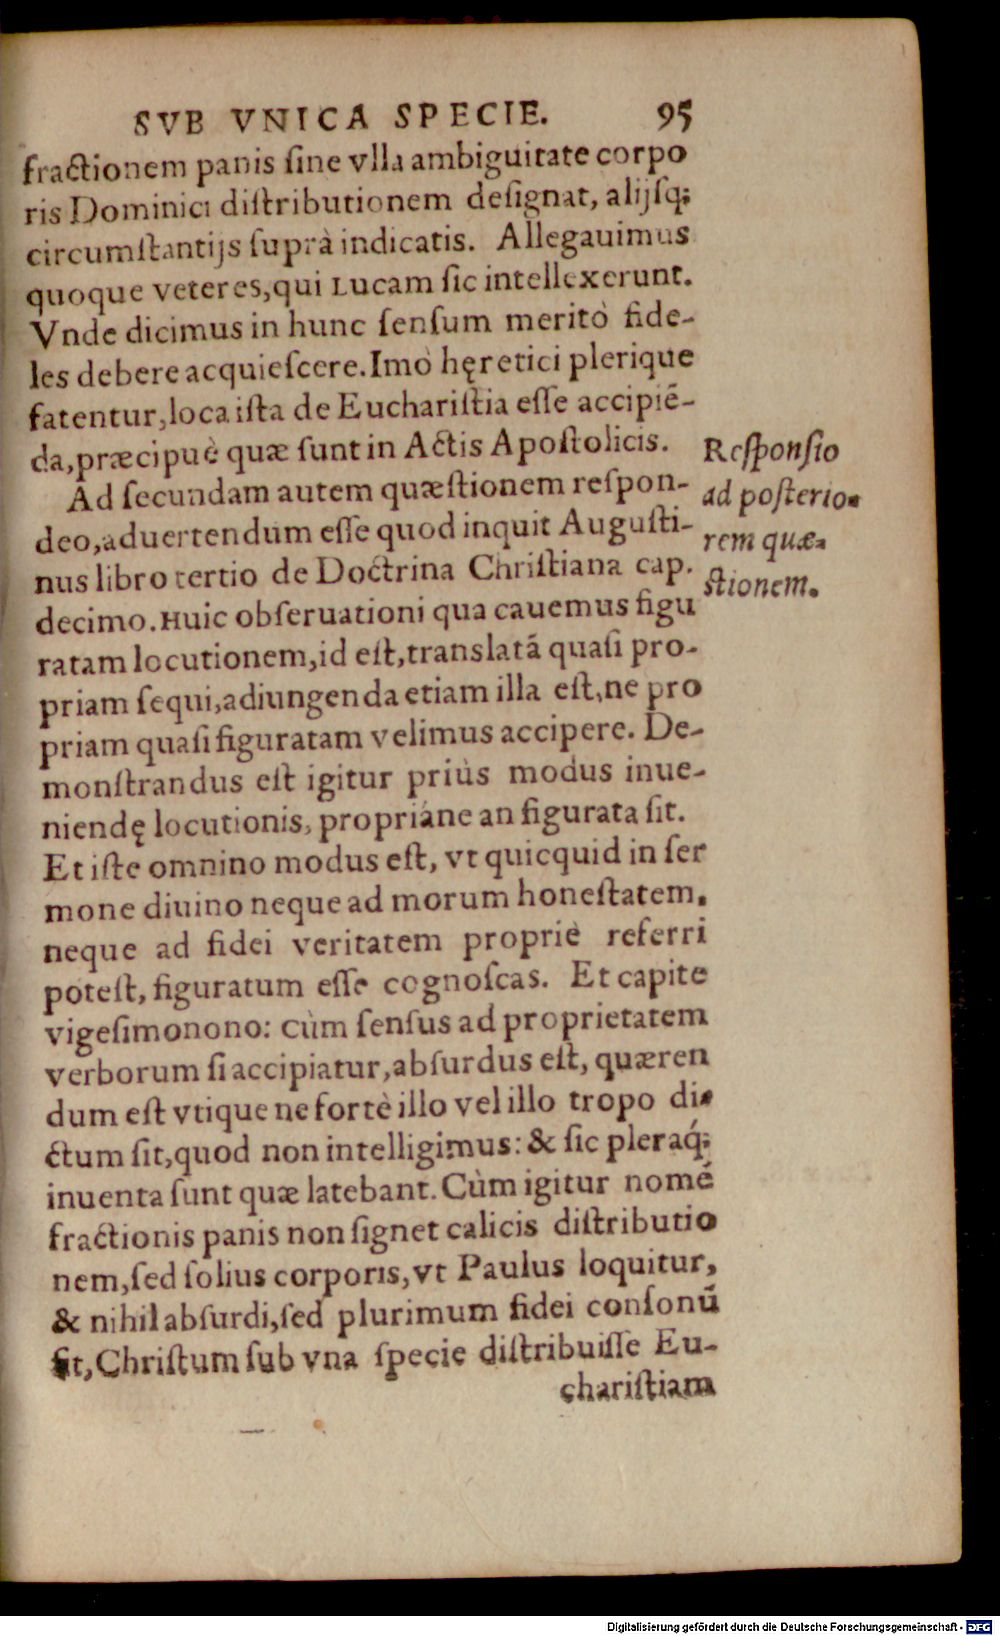 SVB VNICA SPECIE. 95
fractionem panis ſine vlla ambiguitate corpo
ris Dominici diſtributionem deſignat, alijſq;
circumſtantijs ſuprà indicatis. Allegauimus
quoque veteres, qui Lucam ſic intellexerunt.
Vnde dicimus in hunc ſenſum meritò fide-
les debere acquieſcere. Imò hęretici plerique
fatentur, loca iſta de Euchariſtia eſſe accipiē-
da, præcipuè quæ ſunt in Actis Apoſtolicis.
Ad ſecundam autem quæſtionem reſpon-
deo, aduertendum eſſe quod inquit Auguſti-
nus libro tertio de Doctrina Chriſtiana cap.
decimo. Huic obſeruationi qua cauemus figu
ratam locutionem, id eſt, translatā quaſi pro-
priam ſequi, adiungenda etiam illa eſt, ne pro
priam quaſi figuratam velimus accipere. De-
monſtrandus eſt igitur priùs modus inue-
niendę locutionis, propriáne an figurata ſit.
Et iſte omnino modus eſt, vt quicquid in ſer
mone diuino neque ad morum honeſtatem,
neque ad fidei veritatem propriè referri
poteſt, figuratum eſſe cognoſcas. Et capite
vigeſimonono: cùm ſenſus ad proprietatem
verborum ſi accipiatur, abſurdus eſt, quæren
dum eſt vtique ne fortè illo vel illo tropo di-
ctum ſit, quod non intelligimus: & ſic pleraq́;
inuenta ſunt quæ latebant. Cùm igitur nomē
fractionis panis non ſignet calicis diſtributio
nem, ſed ſolius corporis, vt Paulus loquitur,
& nihil abſurdi, ſed plurimum fidei conſonū
ſit, Chriſtum ſub vna ſpecie diſtribuiſſe Eu-
chariſtiam
Reſponſio
ad poſterio-
rem quæ-
ſtionem.
Digitalisierung gefördert durch die Deutsche Forschungsgemeinschaft - DFG